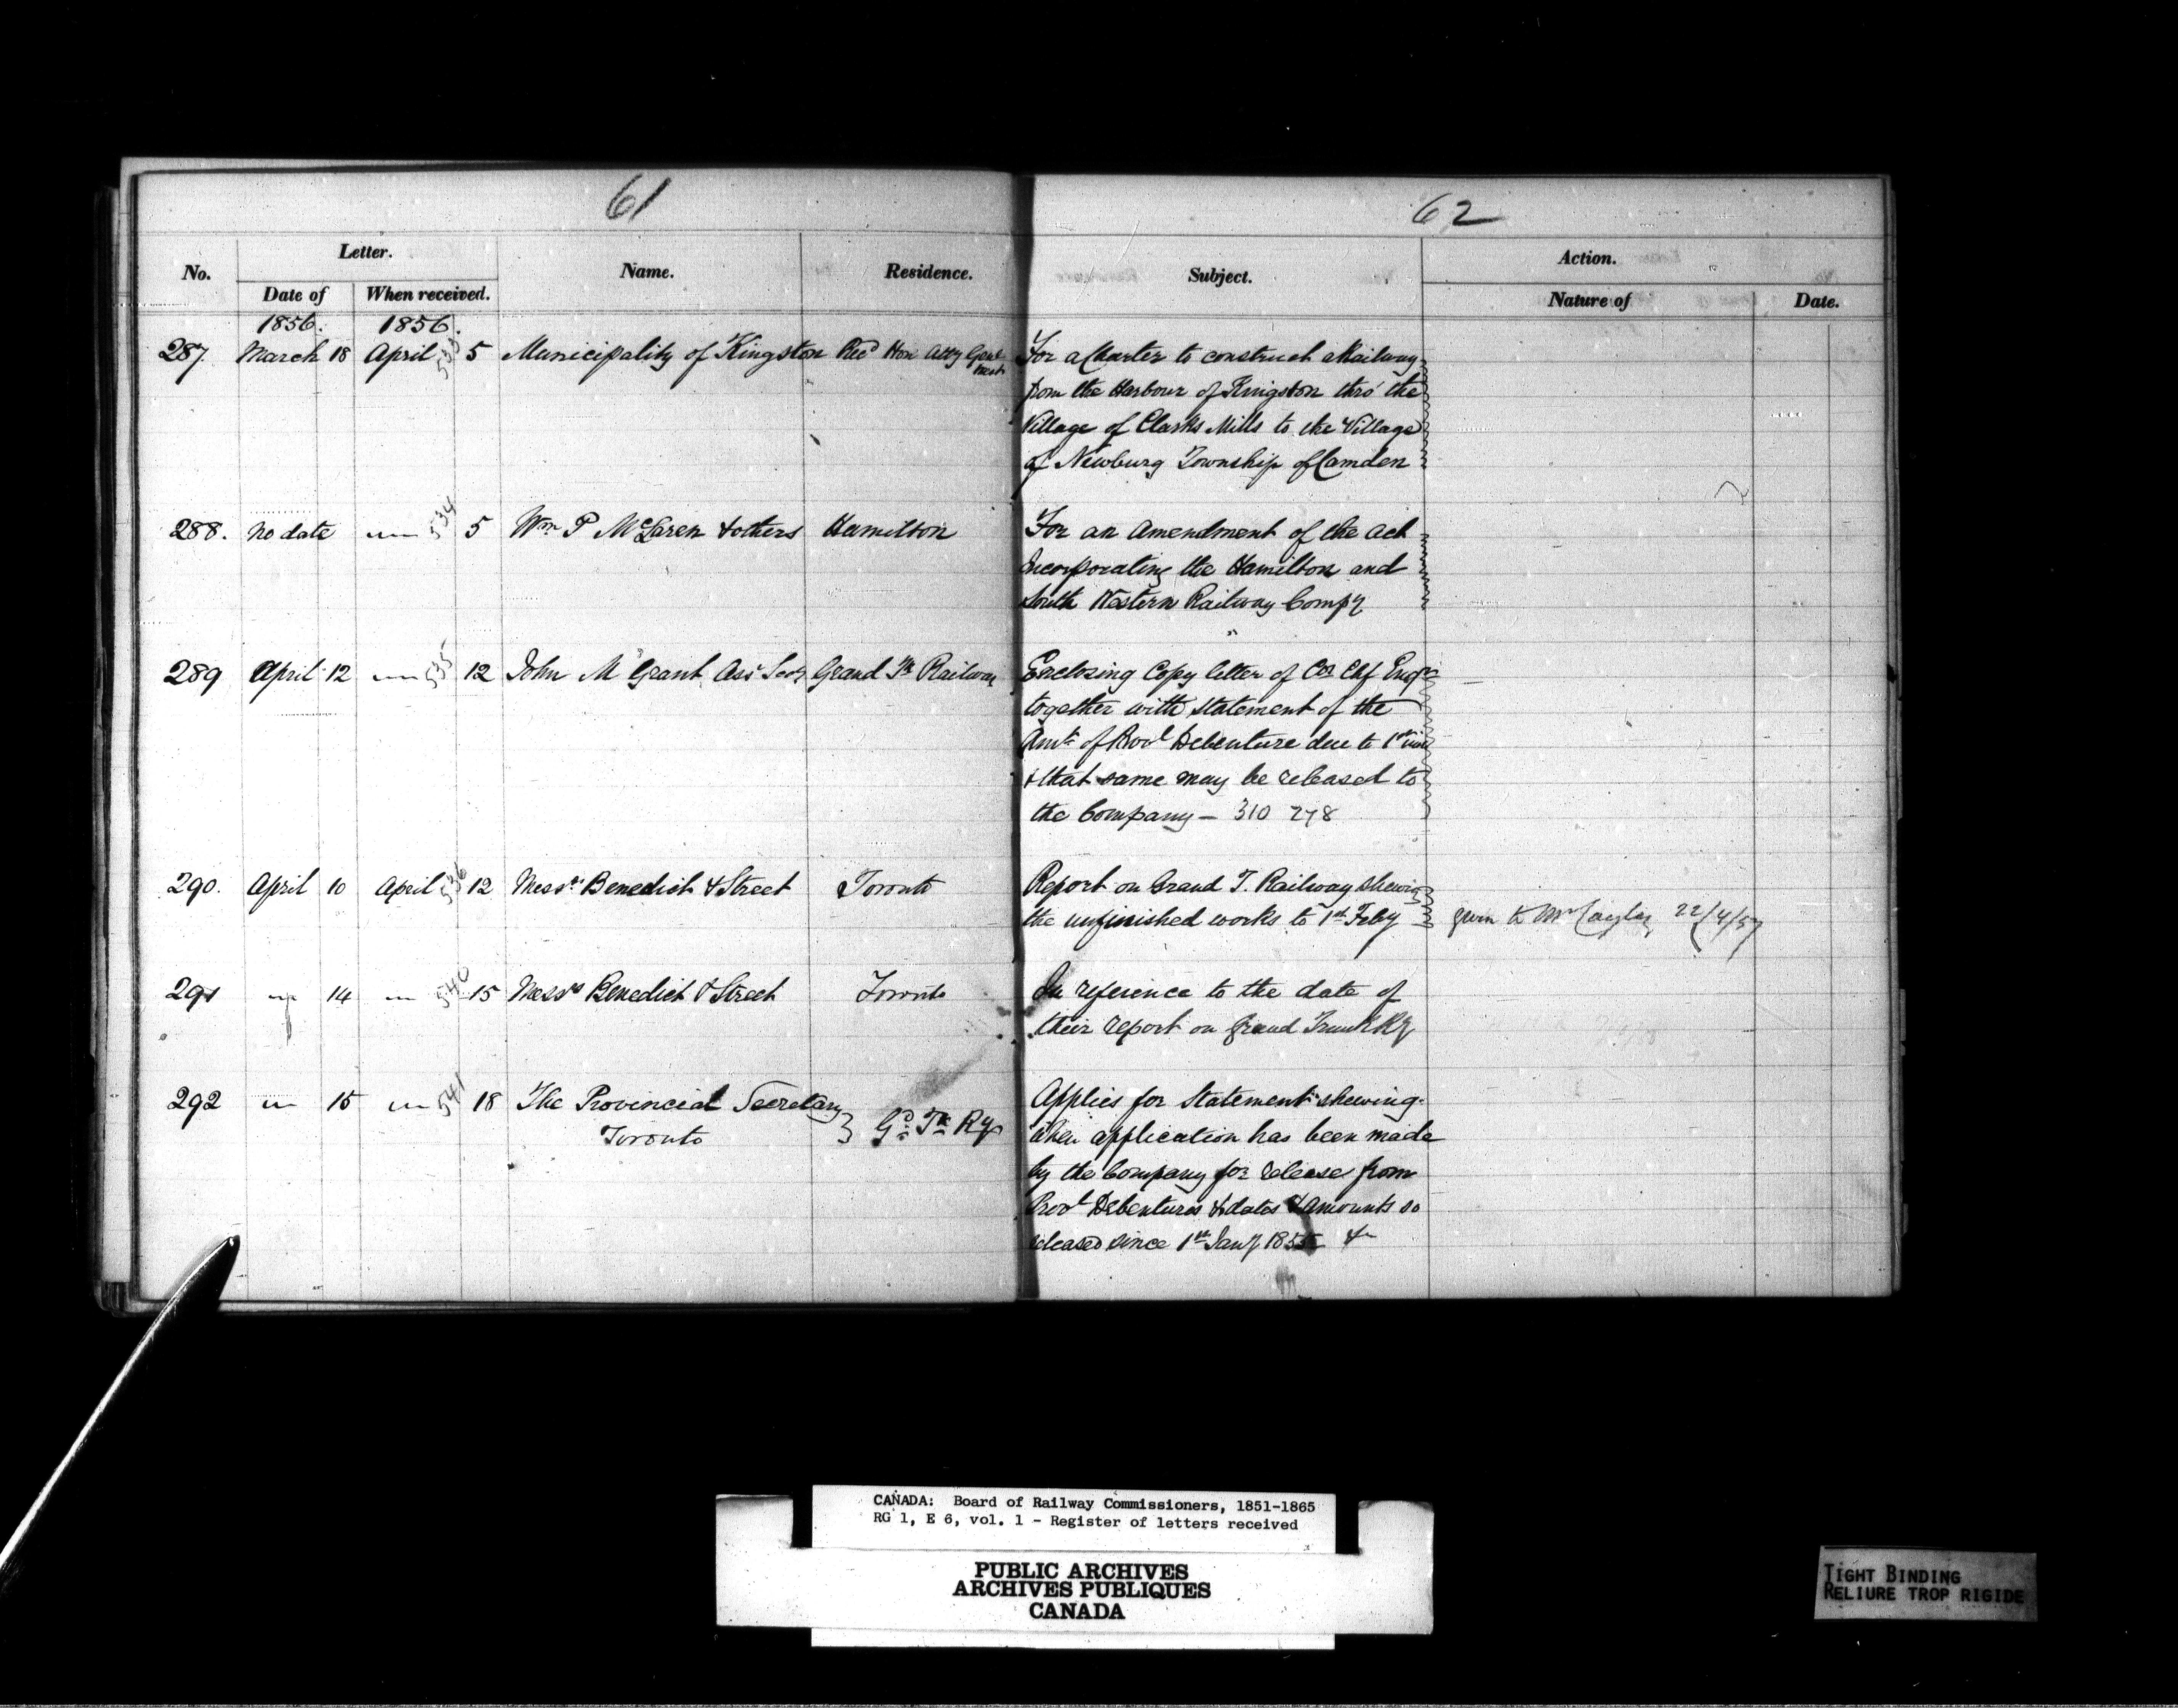 61
62
No. Letter. Name. Residence. Subject. Action.
Date of When received. Nature of Date.
1856. 1856.
287 March 18 April 533 5 Municipality of Kingston Recd Hon Atty Genl West For a Charter to construct a Railway
from the Harbour of Kingston thro' the
Village of Clarks Mills to the Village
of Newburg Township of Camden
288. no date " 534 5 Wm P McLaren & others Hamilton For an amendment of the act
Incorporating the Hamilton and
South Western Railway Compy
289 April 12 " 535 12 John M Grant Asst Secy Grand Tk Railway Enclosing Copy letter of Co Chf Engr
together with statement of the
Amt of Provl Debenture due to 1st
& that same may be released to
the Company — 310 278
290. April 10 April 536 12 Messrs Benedict & Street Toronto Report on Grand T. Railway shewing
the unfinished works to 1st Feby given to Mr Cayley 22/4/57
291 " 14 " 540 15 Messrs Benedict & Street Toronto In reference to the date of
their report on Grand Trunk Ry
292 " 15 " 541 18 The Provincial Secretary } Gd Tk Ry Applies for Statement shewing
Toronto when application has been made
by the Company for release from
Provl Debentures & dates & amounts so
released since 1st Jany 1855
CANADA: Board of Railway Commissioners, 1851-1865
RG 1, E 6, vol. 1 - Register of letters received
PUBLIC ARCHIVES
ARCHIVES PUBLIQUES
CANADA
TIGHT BINDING
RELIURE TROP RIGIDE